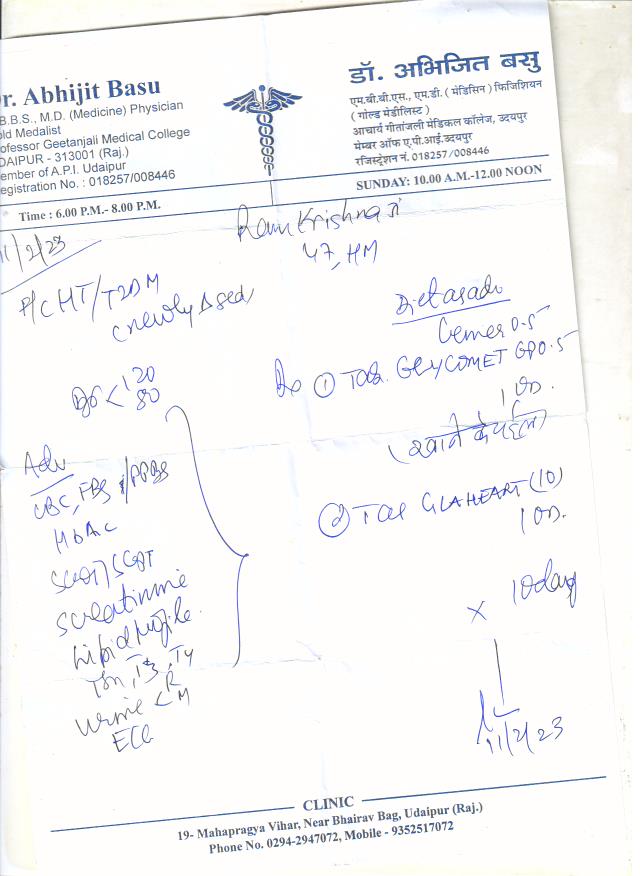 r. Abhijit Basu
.B.B.S., M.D. (Medicine) Physician
old Medalist
ofessor Geetanjali Medical College
DAIPUR - 313001 (Raj.)
ember of A.P.I. Udaipur
egistration No. : 018257/008446
Time : 6.00 P.M.- 8.00 P.M.
डॉ. अभिजित बसु
एम.बी.बी.एस., एम.डी. ( मेडिसिन ) फिजिशियन
( गोल्ड मेडीलिस्ट )
आचार्य गीतांजली मेडिकल कॉलेज, उदयपुर
मेम्बर ऑफ ए.पी.आई. उदयपुर
रजिस्ट्रेशन नं. 018257/008446
SUNDAY: 10.00 A.M.-12.00 NOON
11/2/23
Ram Krishna जी
47, HM
P/C HT/T2DM
(newly
BP < 120
80
Adv
CBC, FBS, PPBS
HbA1c
SGOT/SGPT
S creatinine
Lipid profile.
TSH, T3, T4
Urine < R
M
ECG
0.5
Rx ① Tab. GLYCOMET GP 0.5
1 OD.
(खाने के पहले)
② Tab GLAHEART (10)
1 OD.
× 10 days
11/2/23
CLINIC
19- Mahapragya Vihar, Near Bhairav Bag, Udaipur (Raj.)
Phone No. 0294-2947072, Mobile - 9352517072